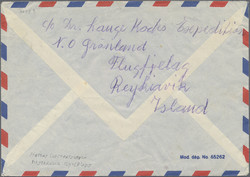 c/o The Lauge Koch's Expedition
N.O Grønland
Flugfjelag
Reykjavik
Island
Mod. dép. No. 55262